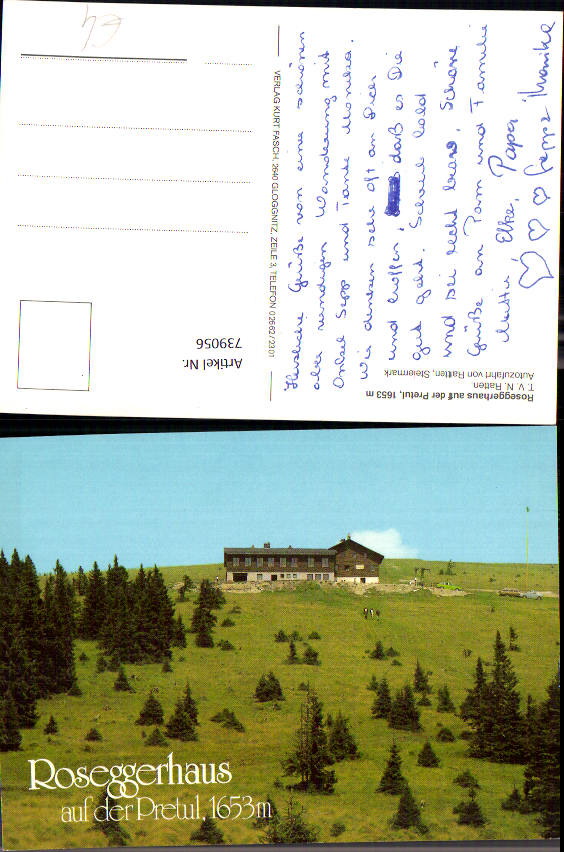 Herzliche Grüße von einer schönen
aber windigen Wanderung mit
Onkel Sepp und Tante Monika.
Wir denken sehr oft an Dich
und hoffen, daß es Dir
gut geht. Schreib bald
und sei recht brav, Schöne
Grüße an Pam und Familie
Mutti, Elke, Papa
Seppi Monika
VERLAG KURT FASCH, 2640 GLOGGNITZ, ZEILE 3, TELEFON 02662/2301
Artikel Nr.
739056
Roseggerhaus auf der Pretul, 1653 m
T. V. N. Ratten
Autozufahrt von Ratten, Steiermark
Roseggerhaus
auf der Pretul, 1653m